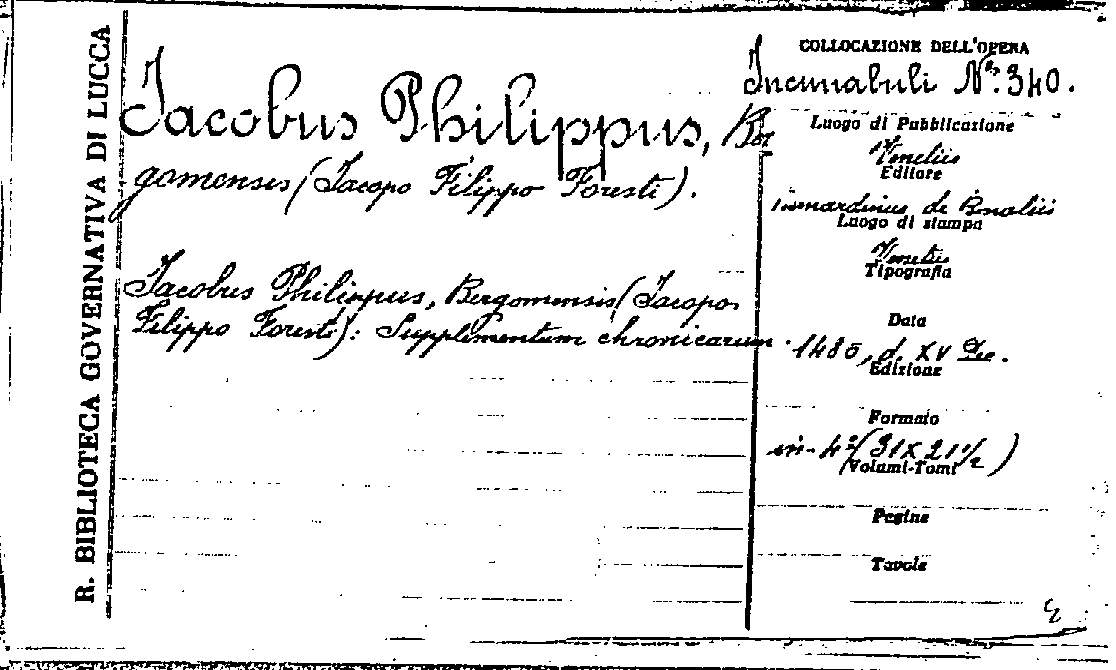 R. BIBLIOTECA GOVERNATIVA DI LUCCA
Jacobus Philippus, Ber
gomensis (Jacopo Filippo Foresti).
Jacobus Philippus, Bergomensis (Jacopo
Filippo Foresti): Supplementum chronicarum
COLLOCAZIONE DELL'OPERA
Incunabuli N.º 340.
Luogo di Pubblicazione
Venetiis
Editore
Bernardinus de Benaliis
Luogo di stampa
Venetiis
Tipografia
Data
1486, d. XV Dec.
Edizione
Formato
in-4º (31 X 21 1/2)
Volumi-Tomi
Pagine
Tavole